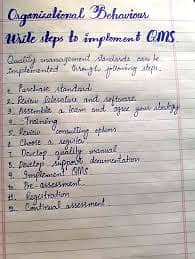 Organizational Behaviour
Write steps to implement QMS
Quality management standards can be
implemented through following steps.
1. Purchase standard
2. Review literature and software
3. Assemble a team and agree your strategy
4. Training
5. Review consulting options
6. Choose a register
7. Develop quality manual
8. Develop support documentation
9. Implement QMS
10. Pre-assessment
11. Registration
12. Continual assessment